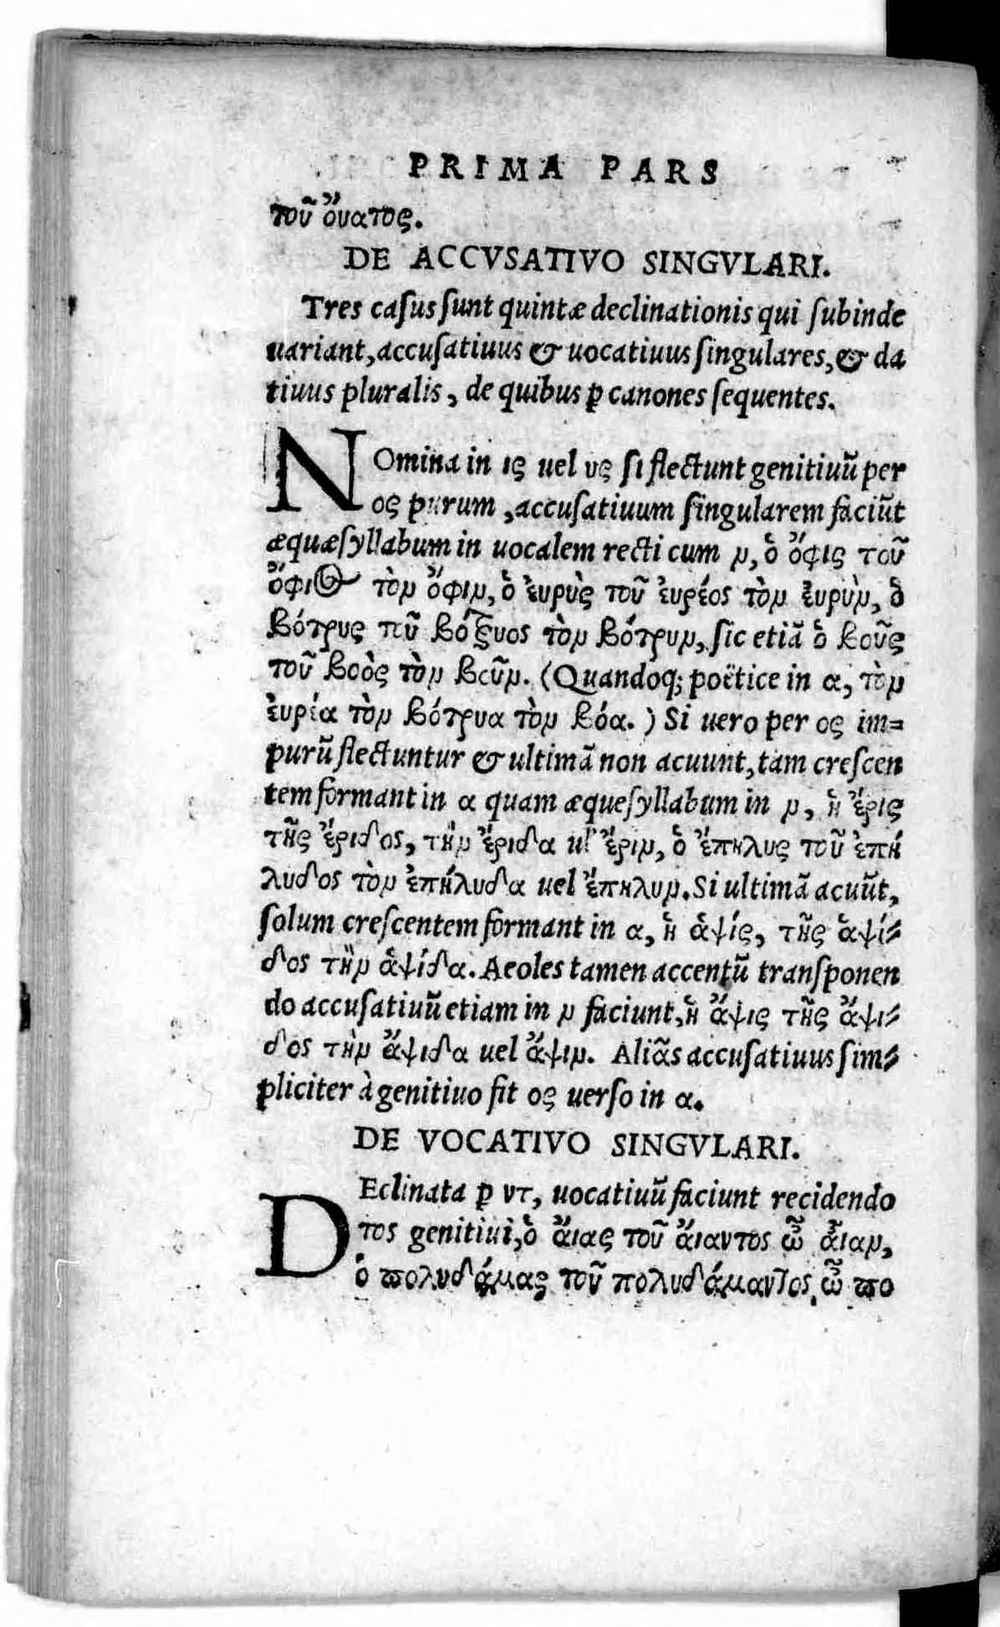 PRIMA PARS
τοῦ ὄυατος.
DE ACCVSATIVO SINGVLARI.
Tres casus sunt quintæ declinationis qui subinde
uariant, accusatiuus & uocatiuus singulares, & da
tiuus pluralis, de quibus ꝑ canones sequentes.
NOmina in ις uel υς si flectunt genitiuũ per
ος purum, accusatiuum singularem faciũt
æquæsyllabum in uocalem recti cum ν, ὁ ὄφις τοῦ
ὄφιος τὸν ὄφιν, ὁ ἐυρὺς τοῦ ἐυρέος τὸν ἐυρὺν, ὁ
βότρυς τοῦ βότρυος τὸν βότρυν, sic etiã ὁ βοῦς
τοῦ βοὸς τὸν βοῦν. (Quandoq; poëtice in α, τὸν
ἐυρέα τὸν βότρυα τὸν βόα.) Si uero per ος im=
purũ flectuntur & ultimã non acuunt, tam crescen
tem formant in α quam æquesyllabum in ν, ἡ ἔρις
τῆς ἔριδος, τὴν ἔριδα uł ἔριν, ὁ ἔπηλυς τοῦ ἐπή
λυδος τὸν ἐπήλυδα uel ἔπηλυν. Si ultimã acuũt,
solum crescentem formant in α, ἡ ἁψίς, τῆς ἁψί=
δος τὴν ἁψίδα. Aeoles tamen accentũ transponen
do accusatiuũ etiam in ν faciunt, ἡ ἄψις τῆς ἄψι=
δος τὴν ἄψιδα uel ἄψιν. Aliãs accusatiuus sim=
pliciter à genitiuo fit ος uerso in α.
DE VOCATIVO SINGVLARI.
DEclinata ꝑ ντ, uocatiuũ faciunt recidendo
τος genitiui, ὁ ἄιας τοῦ ἄιαντος ὦ ἆιαν,
ὁ πολυδάμας τοῦ πολυδάμαντος, ὦ πο